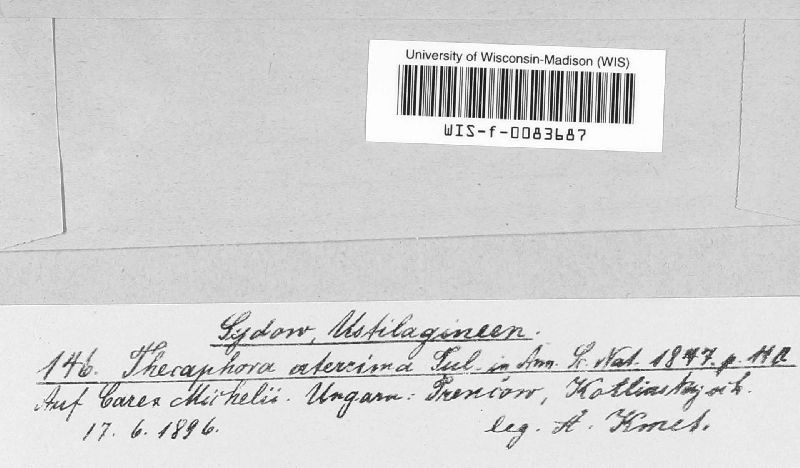 University of Wisconsin-Madison (WIS)
WIS-f-0083687
Sydow, Ustilagineen.
146. Thecaphora aterrima Tul. in Ann. Sc. Nat. 1847. p. 110
Auf Carex Michelii. Ungarn: Prenčow, Kotlinsky vrh.
17. 6. 1896. leg. A. Kmet.